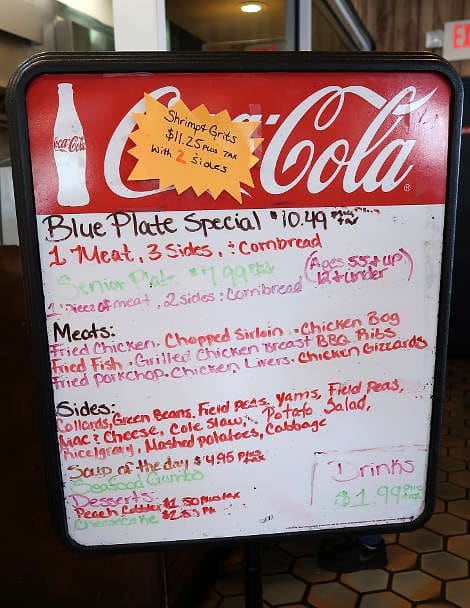 EXI
Coca-Cola
Coca-Cola
Shrimp & Grits
$11.25 Plus Tax
With 2 Sides
Blue Plate Special $10.49 Plus Tax
1 Meat, 3 Sides, & Cornbread
Senior Plate $7.99 Plus Tax
(Ages 55 & up
12 & under)
1 piece of meat, 2 sides & Cornbread
Meats:
Fried Chicken. Chopped Sirloin. Chicken Bog
Fried Fish. Grilled Chicken Breast BBQ Ribs
Fried Porkchop. Chicken Livers. Chicken Gizzards
Sides:
Collards, Green Beans, Field Peas, Yams, Field Peas,
Mac & Cheese, Cole Slaw, Potato Salad,
Rice/gravy, Mashed Potatoes, Cabbage
Soup of the day $4.95 Plus Tax
Seafood Gumbo
Desserts:
Peach Cobbler $1.50 Plus tax
Cheesecake
Drinks
$1.99 Plus Tax